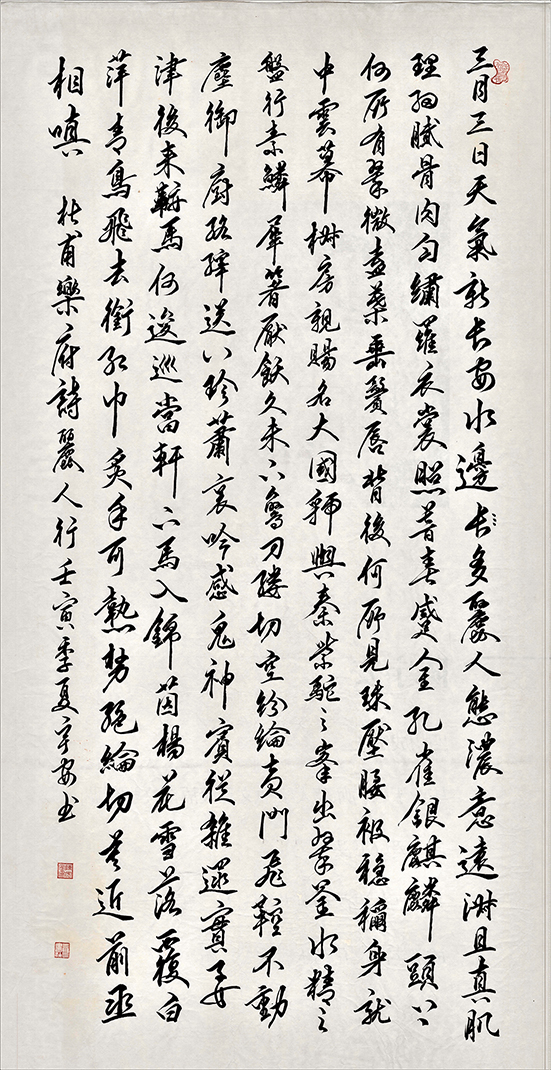 三月三日天氣新长安水邊长多麗人態濃意遠淑且真肌
理細膩骨肉勻繡羅衣裳照暮春蹙金孔雀銀麒麟頭上
何所有翠微盍葉垂鬢唇背後何所見珠壓腰衱穩稱身就
中雲幕椒房親賜名大國虢與秦紫駝之峯出翠釜水精之
盤行素鱗犀箸厭飫久未下鸞刀縷切空紛綸黃門飛鞚不動
塵御廚絡繹送八珍蕭哀吟感鬼神賓從雜遝實要
津後來鞍馬何逡巡當軒下馬入錦茵楊花雪落覆白
萍青鳥飛去銜紅巾炙手可熱勢絕綸切莫近前丞
相嗔 杜甫樂府詩麗人行壬寅季夏宇安书